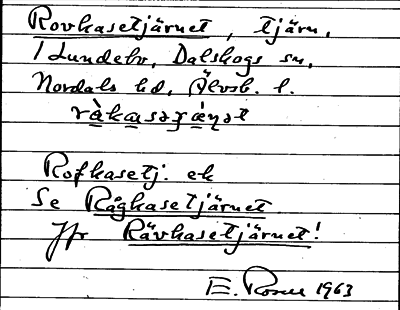 Rovkasetjärnet, tjärn,
i Lundebo, Dalskogs sn,
Nordals hd, Älvsb. l.
Rofkasetj. ek
Se Rågkasetjärnet
Jfr Rävkasetjärnet!
E. 1963